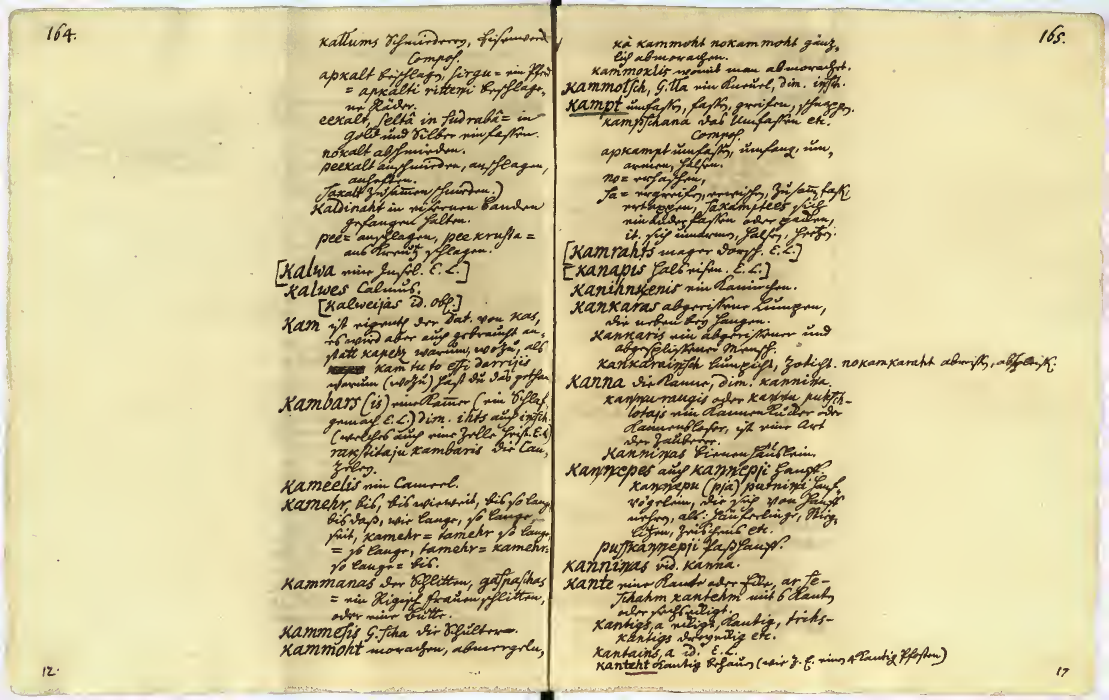 164.
kallums Schmiederey, Eisenwerk
Compos.
apkalt beschlagen, sirgu = ein Pferd
= apkalti ritteni beschlage-
ne Räder.
eekalt, seltâ in sudrabâ = in
Gold und Silber einfassen.
nokalt abschmieden.
peekalt anschmieden, anschlagen,
anheften.
sakalt zusammen schmieden.)
kaldinaht in eisernen Banden
gefangen halten.
pee = anschlagen, pee krusta =
ans Kreutz schlagen.
[Kalwa eine Insel. E. L.]
Kalwes Calmus.
[Kalweijas id. Obs.]
Kam ist eigentl der Dat. von kas,
es wird aber auch gebraucht an-
statt kapehz warum, wozu, als
kam tu to essi darrijis
warum (wozu) hast du das gethan
Kambars (is) eine Kammer (ein Schlaf
gemach E. L.) dim. ihts auch insch.
(welches auch eine Zelle heist. E. L.)
rakstitaju kambaris die Can-
zeley.
Kameelis ein Cameel.
Kamehr, bis, bis wie weit, bis so lang
bis daß, wie lange, so lange
seit, kamehr = tamehr so lange
= so lange, tamehr = kamehr =
so lange = bis.
Kammanas der Schlitten, gaspaschas
= ein Rigisch Frauenschlitten,
oder eine Butte.
Kammesis G. scha die Schulter.
Kammoht morachen, abmergeln,
12.
165.
kâ kammoht nokammoht gänz-
lich abmorachen.
kammoklis womit man abmorachet.
Kammolsch, G. lla ein Kneuel, dim. insch.
Kampt umfassen, fassen, greifen, schnappen.
kampschana das Umfassen etc.
Compos.
apkampt umfassen, umfangen, um-
armen, halsen.
no = erhaschen,
sa = ergreifen, erwischen, zusammen fassen
ertappen, sakamptees sich
einander fassen oder packen,
it. sich umarmen, halsen, hertzen.
[Kamrahts mager Dorsch. E. L.]
[Kanapis Halseisen. E. L.]
Kanihnkenis ein Kaninchen.
Kankaras abgerissene Lumpen,
die neben bey hangen.
Kankaris ein abgerissener und
abgeschlissener Mensch.
kankarainsch lumpicht, zoticht. nokankaraht abreissen, abschleissen.
Kanna die Kanne, dim. kannina.
kannu raugis oder kannu puhsch-
lotajs ein Kannenkucker oder
Kannenblaser, ist eine Art
der Zauberer.
Kanninas Bienenhäuslein.
Kannepes auch kannepji Hanf.
kannepu (pja) putnini Hanf-
vögelein, die sich von Hanf
nehren, als: Hänferlinge, Stieg-
litzen, Zeischens etc.
pusskannepji Paßhanf.
Kanninas vid. kanna.
Kante eine Kante oder Ecke, ar se-
schahm kantehm mit 6 Kanten
oder sechseckigt.
Kantigs, a eckigt, kantig, trihs-
kantigs dreyeckig etc.
kantains, a id. E. L.
kanteht kantig behauen (wie z. E. einen 4kantig Pfosten)
17